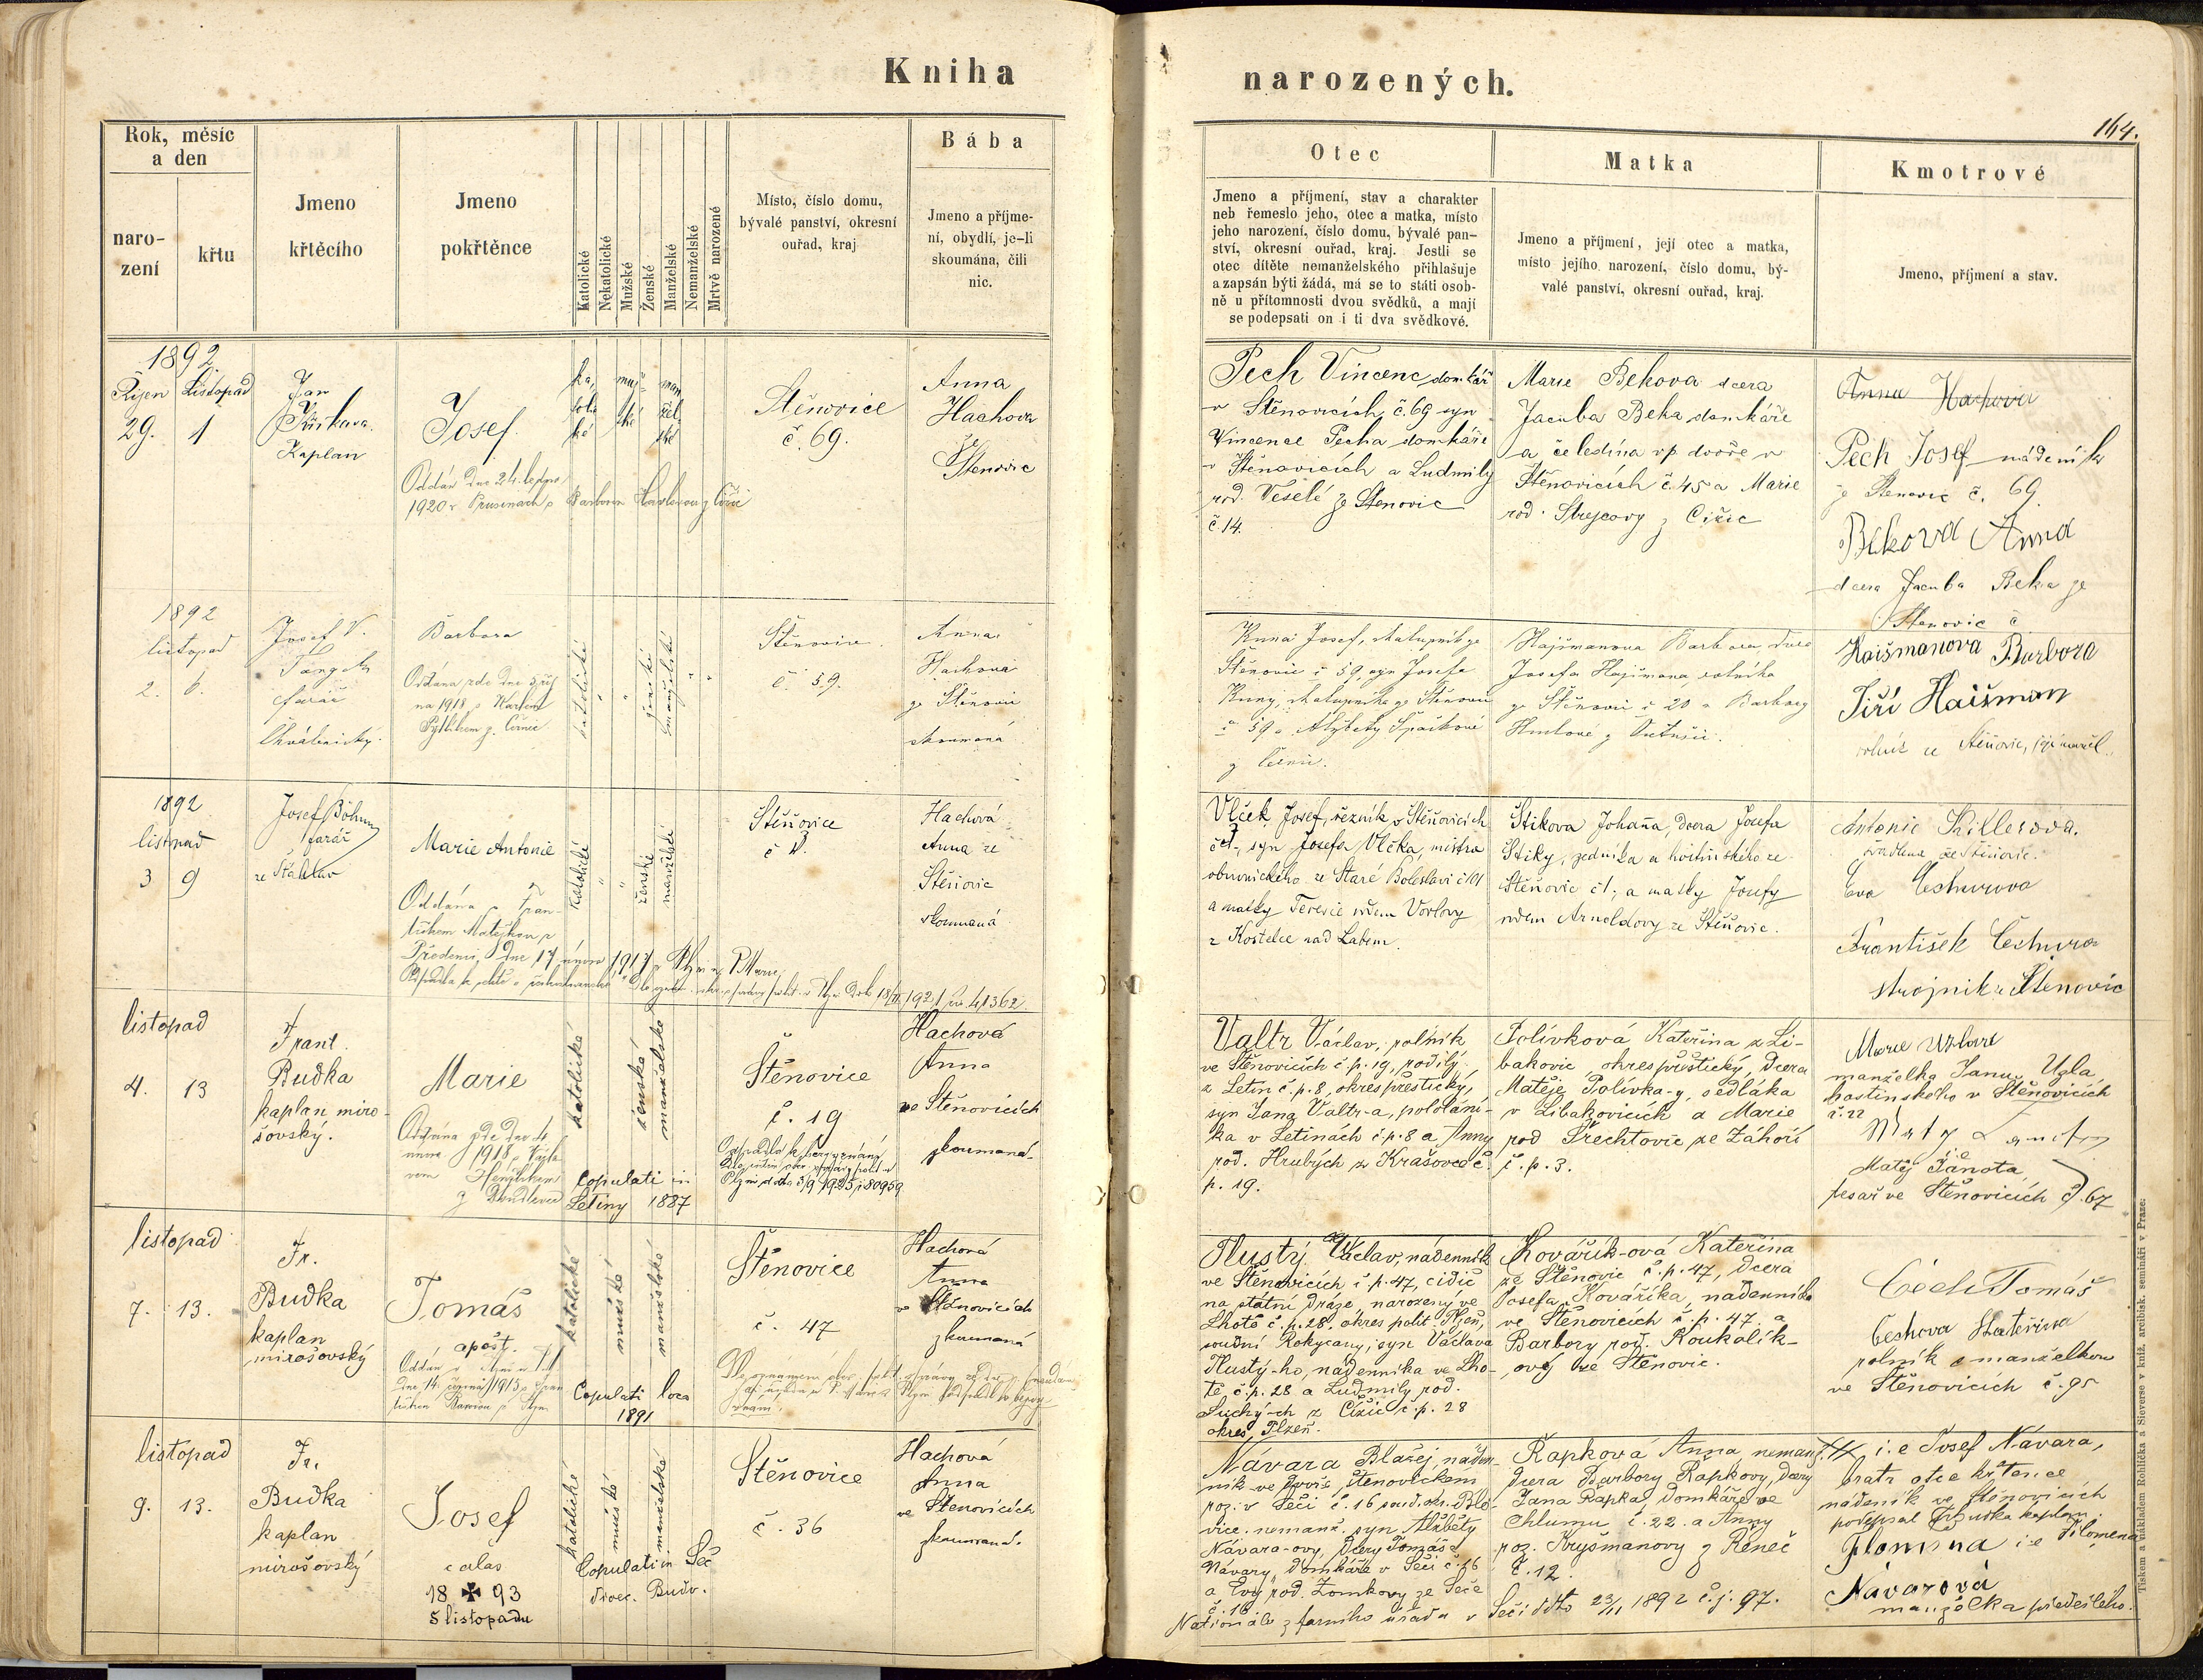 Kniha
narozených.
164.
Rok, měsíc
a den
naro-
zení
křtu
Jmeno
křtěcího
Jmeno
pokřtěnce
Katolické
Nekatolické
Mužské
Ženské
Manželské
Nemanželské
Mrtvě narozené
Místo, číslo domu,
bývalé panství, okresní
ouřad, kraj
Bába
Jmeno a příjme-
ní, obydlí, je-li
skoumána, čili
nic.
Otec
Jmeno a příjmení, stav a charakter
neb řemeslo jeho, otec a matka, místo
jeho narození, číslo domu, bývalé pan-
ství, okresní ouřad, kraj. Jestli se
otec dítěte nemanželského přihlašuje
a zapsán býti žádá, má se to státi osob-
ně u přítomnosti dvou svědků, a mají
se podepsati on i ti dva svědkové.
Matka
Jmeno a příjmení, její otec a matka,
místo jejího narození, číslo domu, bý-
valé panství, okresní ouřad, kraj.
Kmotrové
Jmeno, příjmení a stav.
1892
Říjen Listopad
29. 1
Jan
Kaplan
Josef
Oddán dne 24.
1920 v
ka,
toli
ké
muž
ské
man
žel
ské
Štěnovice
č. 69.
Anna
Hachova
ze
Štěnovic
Pech Vincenc domkář
v Štěnovicích č. 69 syn
Vincence Pecha domkáře
v Štěnovicích a Ludmily
rod. Veselé ze Štěnovic
č 14.
Marie Bekova dcera
Jacuba Beka domkáře
a čeledína v p dvoře v
Štěnovicích č. 45 a Marie
rod. Strejcovy z Čižic
Anna Hachova
Pech Josef nádeník
ze Štenovic č. 69
Bekova Anna
dcera Jacuba Beka ze
Štenovic č
1892
listopad
2. 6.
Josef V.
farář
Chválenický.
Barbora
Oddána zde dne
na 1918 s Karlem
katolické
"
"
ženské
manželské
" "
Štěnovice
č. 59.
Anna
Hachová
ze Štěnovic
skoumaná
Kunai Josef, chalupník ze
Štěnovic č 59, syn Josefa
chalupníka ze Štěnovic
č 59 a Alžběty Špačkové
z
Hajšmanova Barbora, dcera
Josefa Hajšmana, rolníka
ze Štěnovic č 20 a Barbory
Haišmanova Barbora
Jiří Haišman
rolník ze Štěnovic, její manžel.
1892
listopad
3 9
Josef Böhm
farář
ze Šťáhlav
Marie Antonie
Oddána s Fran-
tiškem Matějkou z
Předenic, dne 17 února 1917 v Plzni
katolické
"
"
ženské
manželské
Štěnovice
č 1.
Hachová
Anna ze
Štěnovic
skoumaná
Vlček Josef, řezník v Štěnovicích
č 1., syn Josefa Vlčka, mistra
obuvnického ze Staré Boleslavi č 101
a matky Terezie rodem Vorlovy
z Kostelce nad Labem.
Štikova Johana, dcera Josefa
Štiky, zedníka a hostinského ze
Štěnovic č 1; a matky Josefy
rodem Arnoldovy ze Štěnovic.
Antonie Killerová.
švadlena ze Štěnovic.
Eva Čechurova
František Čechura
strojník z Štěnovic
listopad
4. 13
Frant.
Budka
kaplan miro-
šovský.
Marie
Oddána zde dne 4
února 1918 s
katolické
ženské
manželské
Copulati in
Letiny 1887
Štěnovice
č. 19
Hachová
Anna
ve Štěnovicích
zkoumaná.
Valtr Václav, rolník
ve Štěnovicích č. p. 19, rodilý
z Letin č. p. 8, okres přeštický,
syn Jana Valtr-a, pololání-
ka v Letinách č p. 8 a Anny
rod. Hrubých z Krašovce č.
p. 19.
Polívková Kateřina z Li-
bakovic, okres přeštický, dcera
Matěje Polívka-y, sedláka
v Libakovicích a Marie
rod Trechtovic ze Záhoří
č. p. 3.
Marie Uzlová
manželka Jana Uzla
hostinského v Štěnovicích
č. 22
i.e
Matěj Janota
tesař ve Štěnovicích č. 67
listopad
7. 13.
Fr.
Budka
kaplan
mirošovský
Tomáš
apošt.
katolické
mužské
manželské
Copulati loco
1891
Štěnovice
č. 47
Hachová
Anna
ve Štěnovicích
zkoumaná
Tlustý Václav, nádenník
ve Štěnovicích č. p. 47, čidič
na státní dráze, narozený ve
Lhotě č. p. 28. okres polit. Plzeň,
soudní Rokycany, syn Václava
Tlustý-ho, nádenníka ve Lho-
tě č. p. 28 a Ludmily rod.
Suchý-ch z Čižic č. p. 28
okres Plzeň.
Kovářík-ová Kateřina
ze Štěnovic č. p. 47, dcera
Josefa Kovářika, nádenníka
ve Štěnovicích č. p. 47 a
Barbory rod. Koukolík-
ový ze Štěnovic.
Čech Tomáš
Čechova Kateřina
rolník s manželkou
ve Štěnovicích č. 95
listopad
9. 13.
Fr.
Budka
kaplan
mirošovský
Josef
calas
18 ✠ 93
5 listopadu
katolické
mužské
manželské
Copulati in Seč
dioec. Budv.
Štěnovice
č. 36
Hachová
Anna
ve Štěnovicích
zkoumaná.
Návara Blažej, náden-
ník ve dvoře Štěnovickém
roz. v Seči č. 16 soud. okr. Blo-
vice, nemanž. syn Alžběty
Návara-ovy, dcery Tomáše
Návary, domkáře v Seči č. 16
a Evy rod. Tomkovy ze Seče
č. 16
Řapková Anna, nemanž.
dcera Barbory Řapkovy, dcery
Jana Řapka, domkáře ve
Chlumu č. 22. a Anny
roz. Kryšmanovy z Renče
č. 12.
Nationále z farního úřadu v Seči ddto 23/11 1892 č. j. 97.
+++ i. e Josef Návara,
bratr otce křtěnce
nádeník ve Štěnovicích
podepsal Fr Budka kaplan.
Flomena i e Filomena
Návarová
manželka předešlého.
Tiskem a nákladem Rohlíčka a Sieverse v kníž. arcibisk. semináři v Praze.